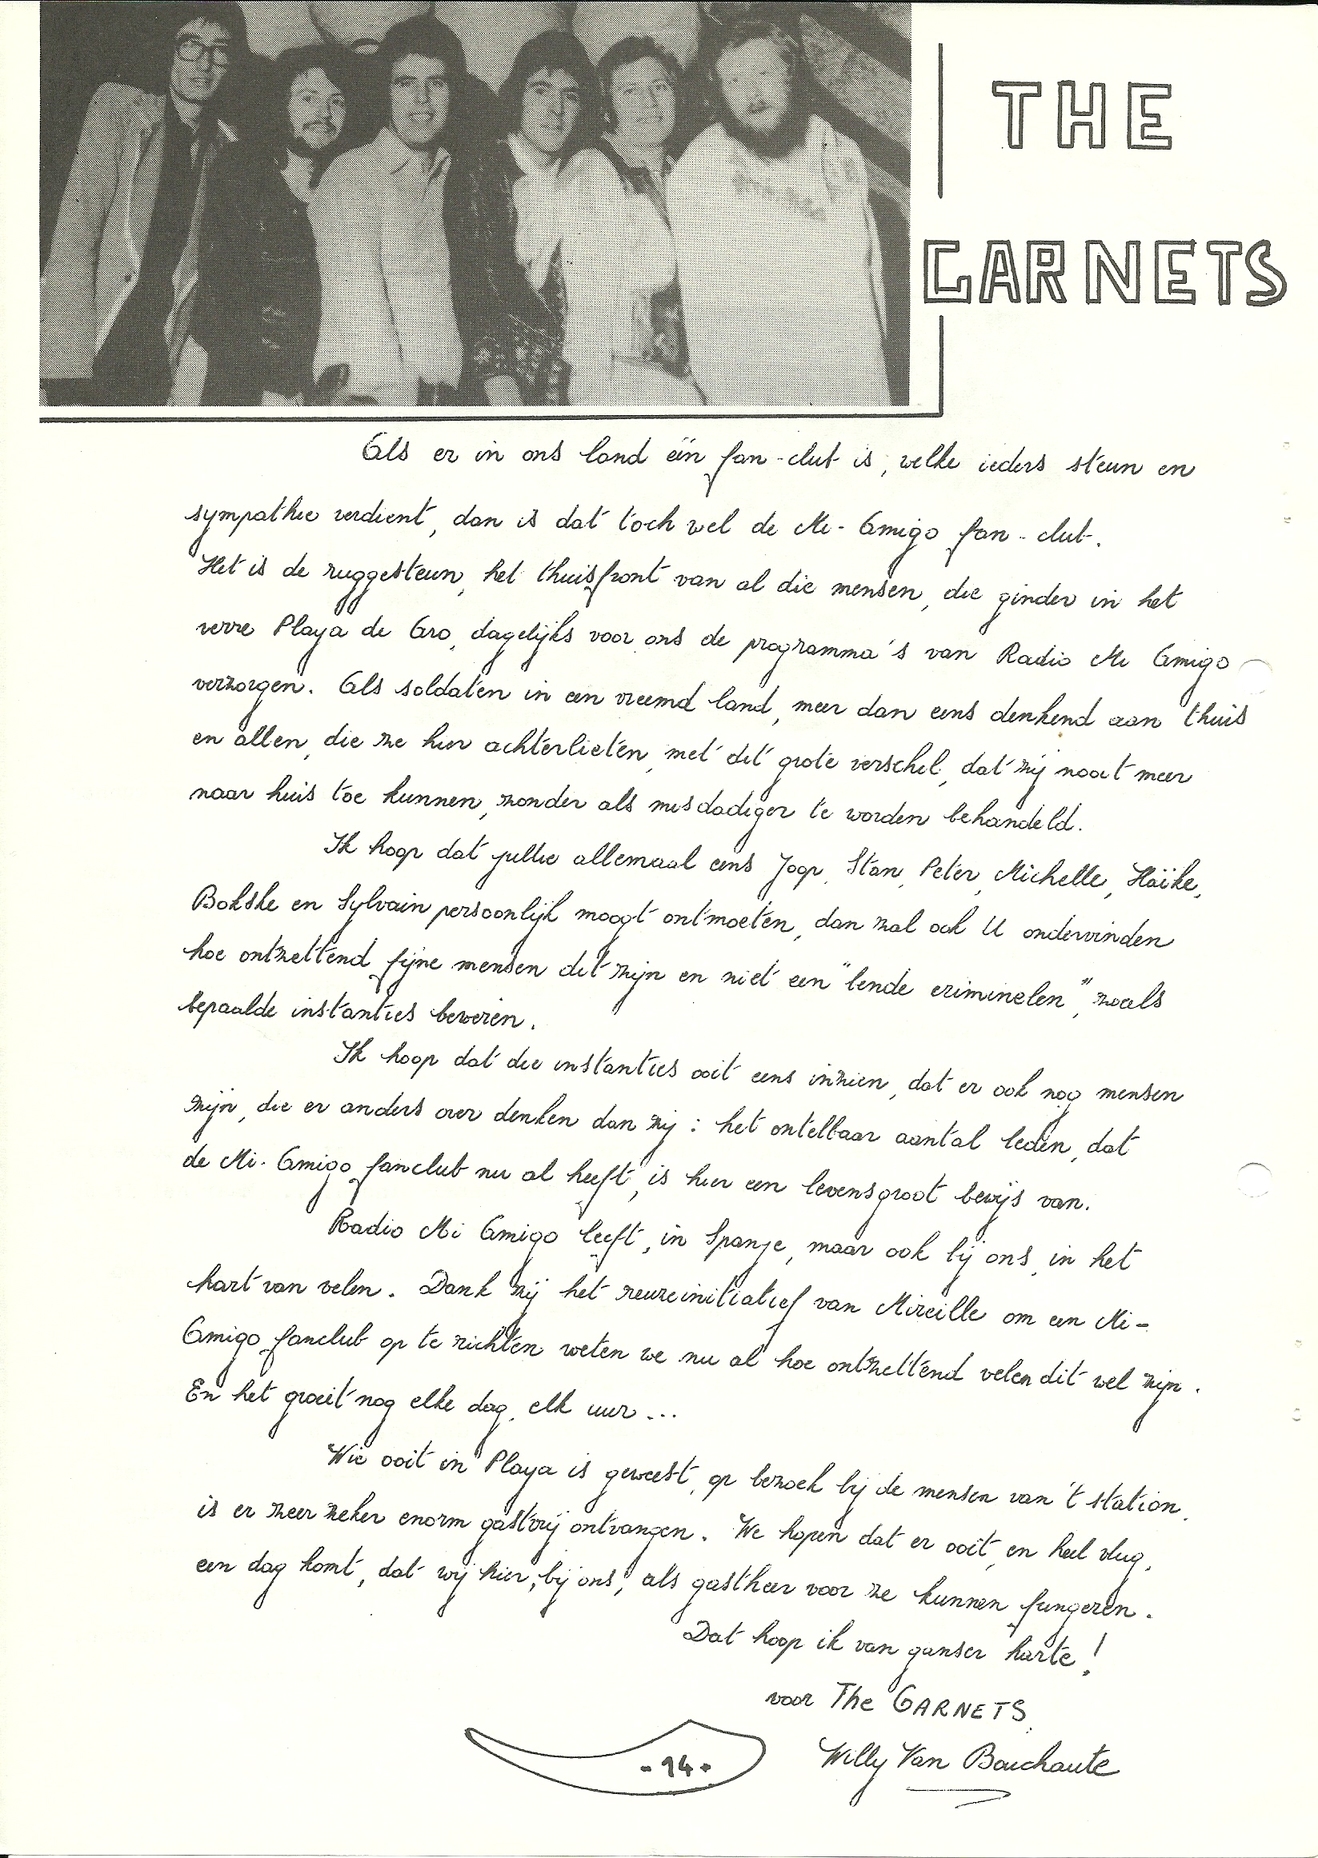 THE
GARNETS
Als er in ons land één fan-club is, welke ieders steun en
sympathie verdient, dan is dat toch wel de Mi-Amigo fan-club.
Het is de ruggesteun, het thuisfront van al die mensen, die ginder in het
verre Playa de Aro, dagelijks voor ons de programma's van Radio Mi Amigo
verzorgen. Als soldaten in een vreemd land, meer dan eens denkend aan thuis
en allen, die ze hier achterlieten, met dit grote verschil, dat zij nooit meer
naar huis toe kunnen, zonder als misdadiger te worden behandeld.
Ik hoop dat jullie allemaal eens Joop, Stan, Peter, Michelle, Haïke,
Bokske en Sylvain persoonlijk moogt ontmoeten, dan zal ook U ondervinden
hoe ontzettend fijne mensen dit zijn en niet een "bende criminelen", zoals
bepaalde instanties beweren.
Ik hoop dat die instanties ooit eens inzien, dat er ook nog mensen
zijn, die er anders over denken dan zij : het ontelbaar aantal leden, dat
de Mi-Amigo fanclub nu al heeft, is hier een levensgroot bewijs van.
Radio Mi Amigo leeft, in Spanje, maar ook bij ons, in het
hart van velen. Dank zij het reuzeinitiatief van Mireille om een Mi-
Amigo fanclub op te richten weten we nu al hoe ontzettend velen dit wel zijn.
En het groeit nog elke dag, elk uur ...
Wie ooit in Playa is geweest, op bezoek bij de mensen van 't station,
is er zeer zeker enorm gastvrij ontvangen. We hopen dat er ooit, en heel vlug,
een dag komt, dat wij hier, bij ons, als gastheer voor ze kunnen fungeren.
Dat hoop ik van ganser harte!
voor The GARNETS,
Willy Van Bouchaute
-14-